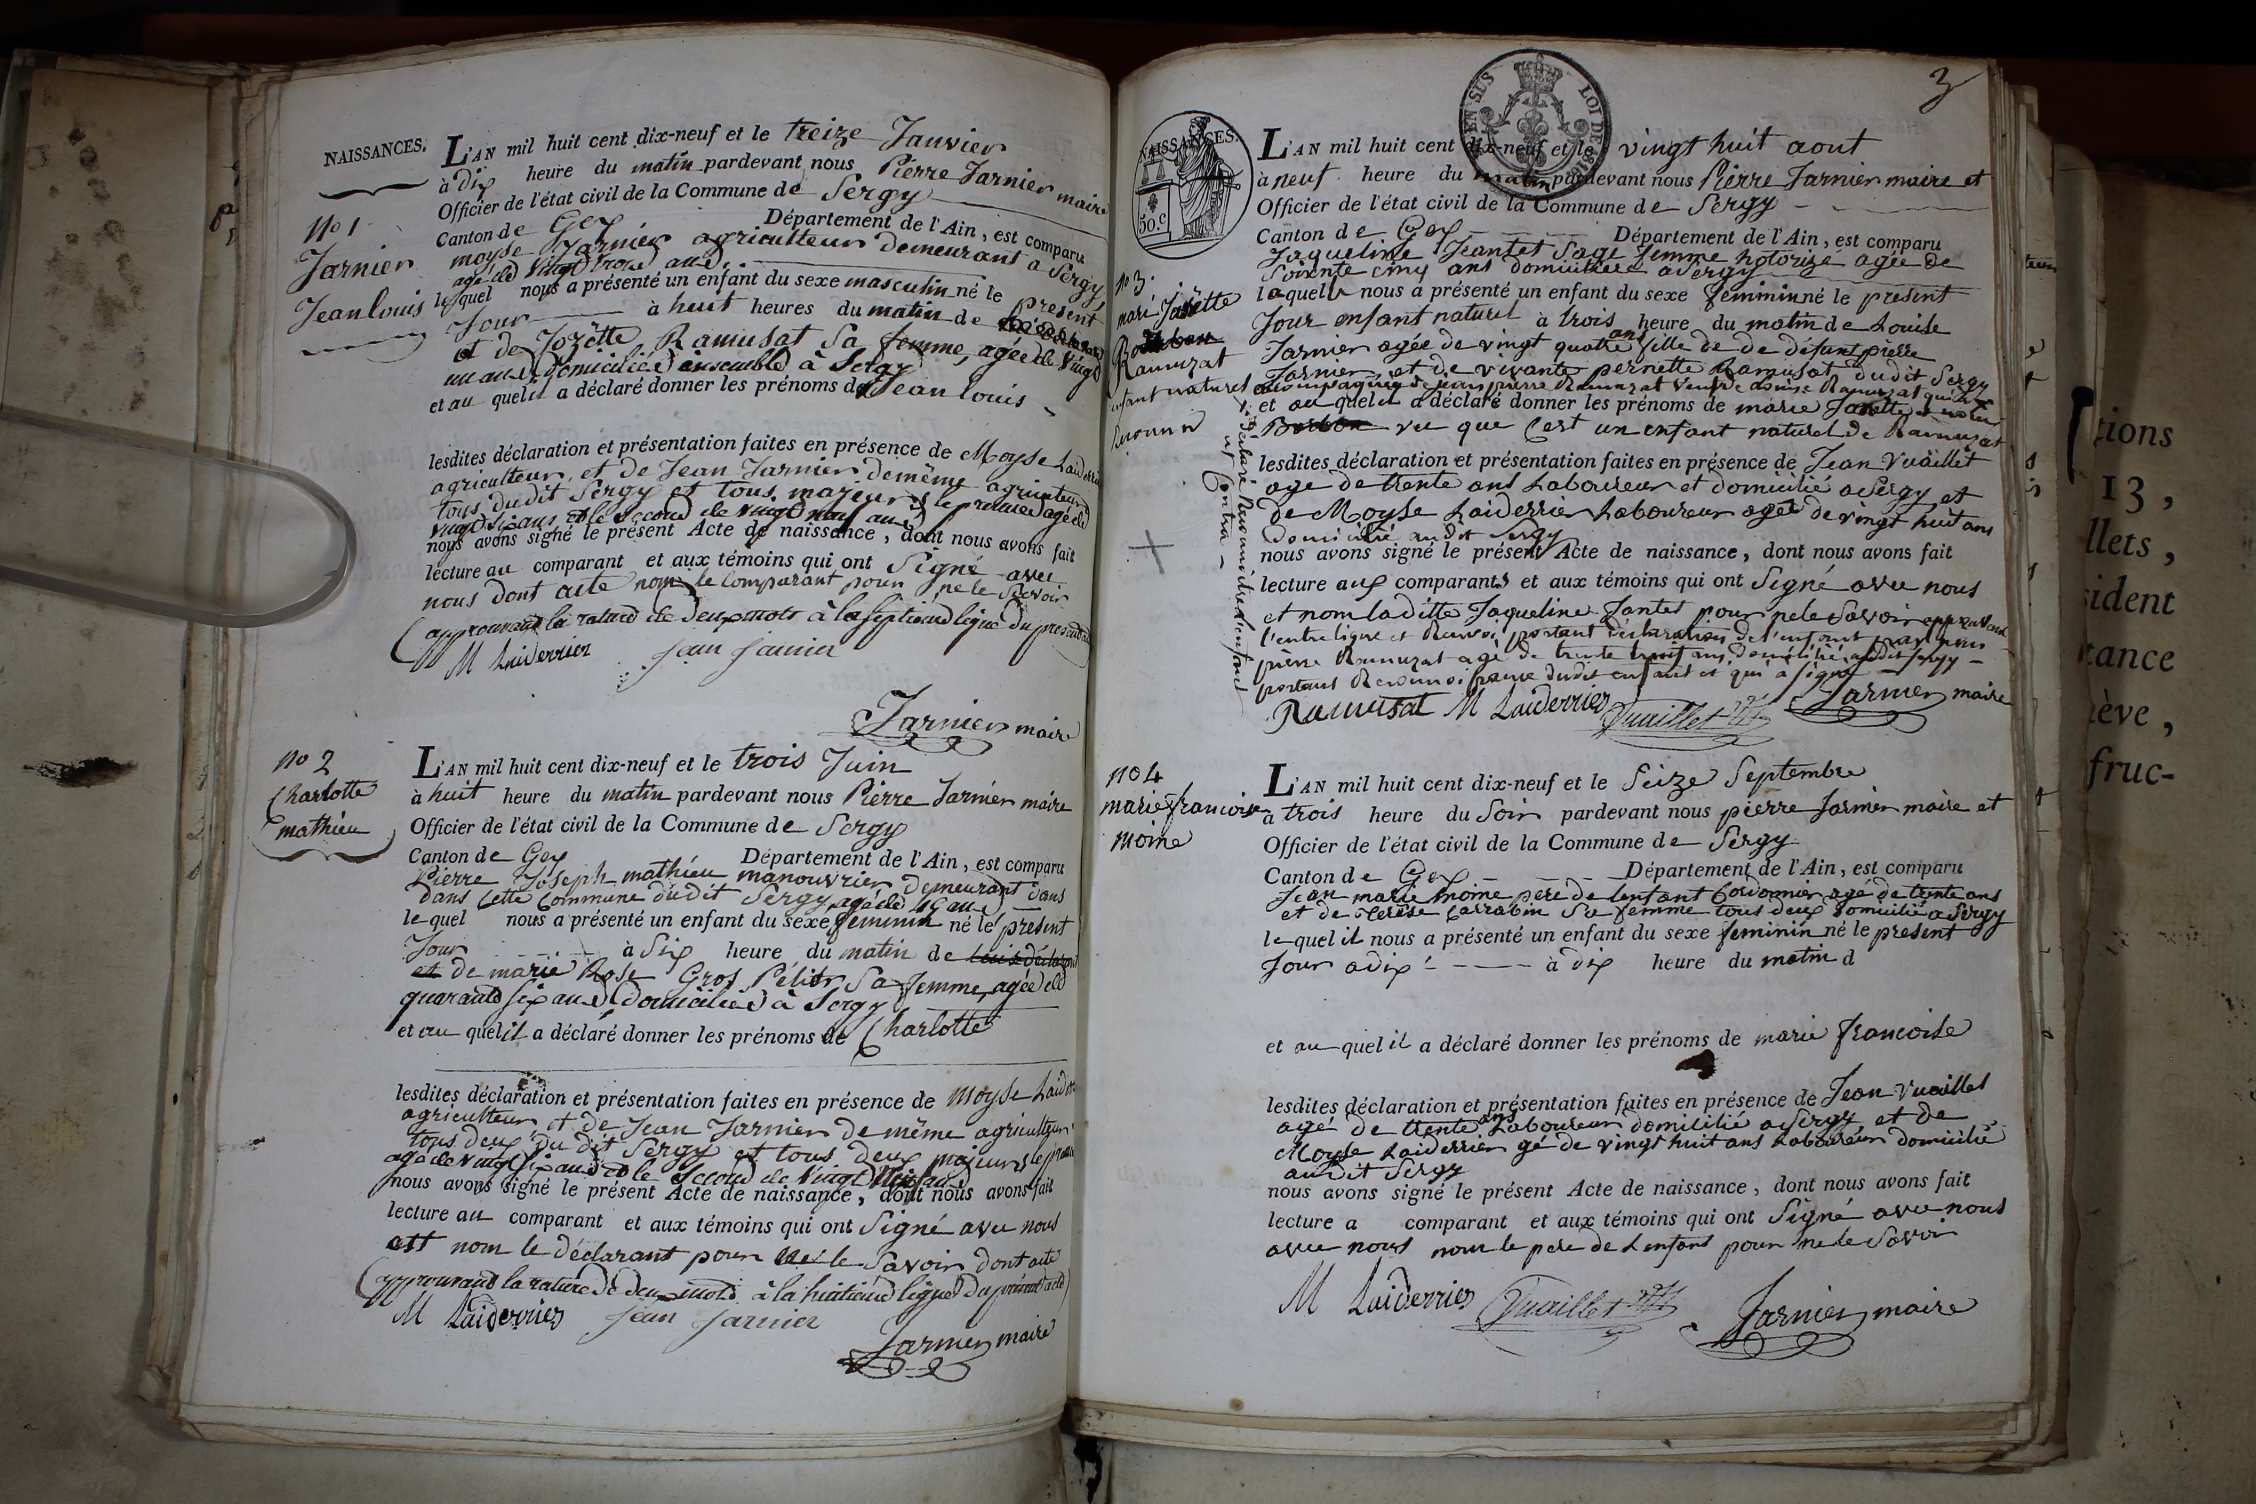 NAISSANCES.
L'AN mil huit cent dix-neuf et le treize Janvier
à dix heure du matin pardevant nous Pierre Jarnier maire
Officier de l'état civil de la Commune de Sergy
Canton de Gex Département de l'Ain, est comparu
moyse Jarnier agriculteur demeurant a Sergy
agé de vingt trois ans
lequel nous a présenté un enfant du sexe masculin né le present
Jour à huit heures du matin de
et de Jozette Ramusat Sa femme, agée de vingt
un ans domiciliés ensemble à Sergy
et au quel il a déclaré donner les prénoms de Jean Louis
No 1
Jarnier
Jean Louis
lesdites déclaration et présentation faites en présence de Moyse Laiderrier
agriculteur et de Jean Jarnier demême agriculteur
tous dudit Sergy et tous majeurs le premier agé de
vingt six ans et le Second de vingt neuf ans
nous avons signé le présent Acte de naissance, dont nous avons fait
lecture au comparant et aux témoins qui ont Signé avec
nous dont acte non le comparant pour ne le Savoir
approuvant la rature de deux mots à la septieme ligne du present
M Laiderrier Jean Jarnier
Jarnier maire
No 2
Charlotte
mathieu
L'AN mil huit cent dix-neuf et le trois Juin
à huit heure du matin pardevant nous Pierre Jarnier maire
Officier de l'état civil de la Commune de Sergy
Canton de Gex Département de l'Ain, est comparu
Pierre Joseph mathieu manouvrier demeurant dans
dans Cette Commune dudit Sergy agé de ans
lequel nous a présenté un enfant du sexe feminin né le present
Jour à Six heure du matin de
et de marie Rose Gros Pélitr Sa femme, agée de
quarante six ans domiciliés à Sergy
et au quel il a déclaré donner les prénoms de Charlotte
lesdites déclaration et présentation faites en présence de Moyse Laiderr
agriculteur et de Jean Jarnier de même agriculteur
tous deux du dit Sergy et tous deux majeurs le premier
agé de vingt six ans et le Second de vingt ans
nous avons signé le présent Acte de naissance, dont nous avons fait
lecture au comparant et aux témoins qui ont Signé avec nous
non le déclarant pour ne le Savoir dont acte
approuvant la rature de deux mots à la huitieme ligne du présent acte
M Laiderrier Jean Jarnier
Jarnier maire
3
NAISSANCES.
50.c
EN SUS LOI DE 1816
L'AN mil huit cent dix-neuf et le vingt huit aout
à neuf heure du matin pardevant nous Pierre Jarnier maire et
Officier de l'état civil de la Commune de Sergy
Canton de Gex Département de l'Ain, est comparu
Jaqueline Jeantet Sage femme notorisé agée de
Soixente cinq ans domiciliée a Sergy
laquelle nous a présenté un enfant du sexe feminin né le present
Jour enfant naturel à trois heure du matin de Louise
Jarnier agée de vingt quatre ans fille de de défunt pierre
Jarnier et de vivante pernette Ramusat dudit Sergy
accompagnée de jean pierre Ramuzat
et au quel il a déclaré donner les prénoms de marie Josette
vu que C'est un enfant naturel de Ramuzat
no 3.
marie Josette
Ramuzat
enfant naturel
Reconnu
lesdites déclaration et présentation faites en présence de Jean Vuaillet
age de trente ans Laboureur et domicilié a Sergy et
de Moyse Laiderrier Laboureur aget de vingt huit ans
domicilié audit Sergy
nous avons signé le présent Acte de naissance, dont nous avons fait
lecture aux comparants et aux témoins qui ont Signé avec nous
et nom laditte Jaqueline Jantet pour ne le Savoir approuvant
l'entreligne et Renvoi portant déclaration de l'enfant par jean
pierre Ramuzat agé de trente ans domicilié audit Sergy
portant Reconnoissance dudit enfant et qui a signé
Ramusat M Laiderrier Vuaillet Jarnier maire
no 4
marie francoise
moine
L'AN mil huit cent dix-neuf et le Seize Septembre
à trois heure du Soir pardevant nous pierre Jarnier maire et
Officier de l'état civil de la Commune de Sergy
Canton de Gex Département de l'Ain, est comparu
Jean marie moine pere de lenfant Cordonnier agé de trente ans
et de Terese Carrabin Sa femme tous deux domicilié a Sergy
lequel il nous a présenté un enfant du sexe feminin né le present
Jour a dix à dix heure du matin d
et au quel il a déclaré donner les prénoms de marie francoise
lesdites déclaration et présentation faites en présence de Jean Vuaillet
agé de trente ans Laboureur domicilié a Sergy et de
Moyse Laiderrier gé de vingt huit ans Laboureur domicilié
audit Sergy
nous avons signé le présent Acte de naissance, dont nous avons fait
lecture a comparant et aux témoins qui ont Signé avec nous
avec nous nom le pere de Lenfant pour ne le Savoir
M Laiderrier Vuaillet Jarnier maire
tions
13,
llets,
sident
tance
nève,
fruc-